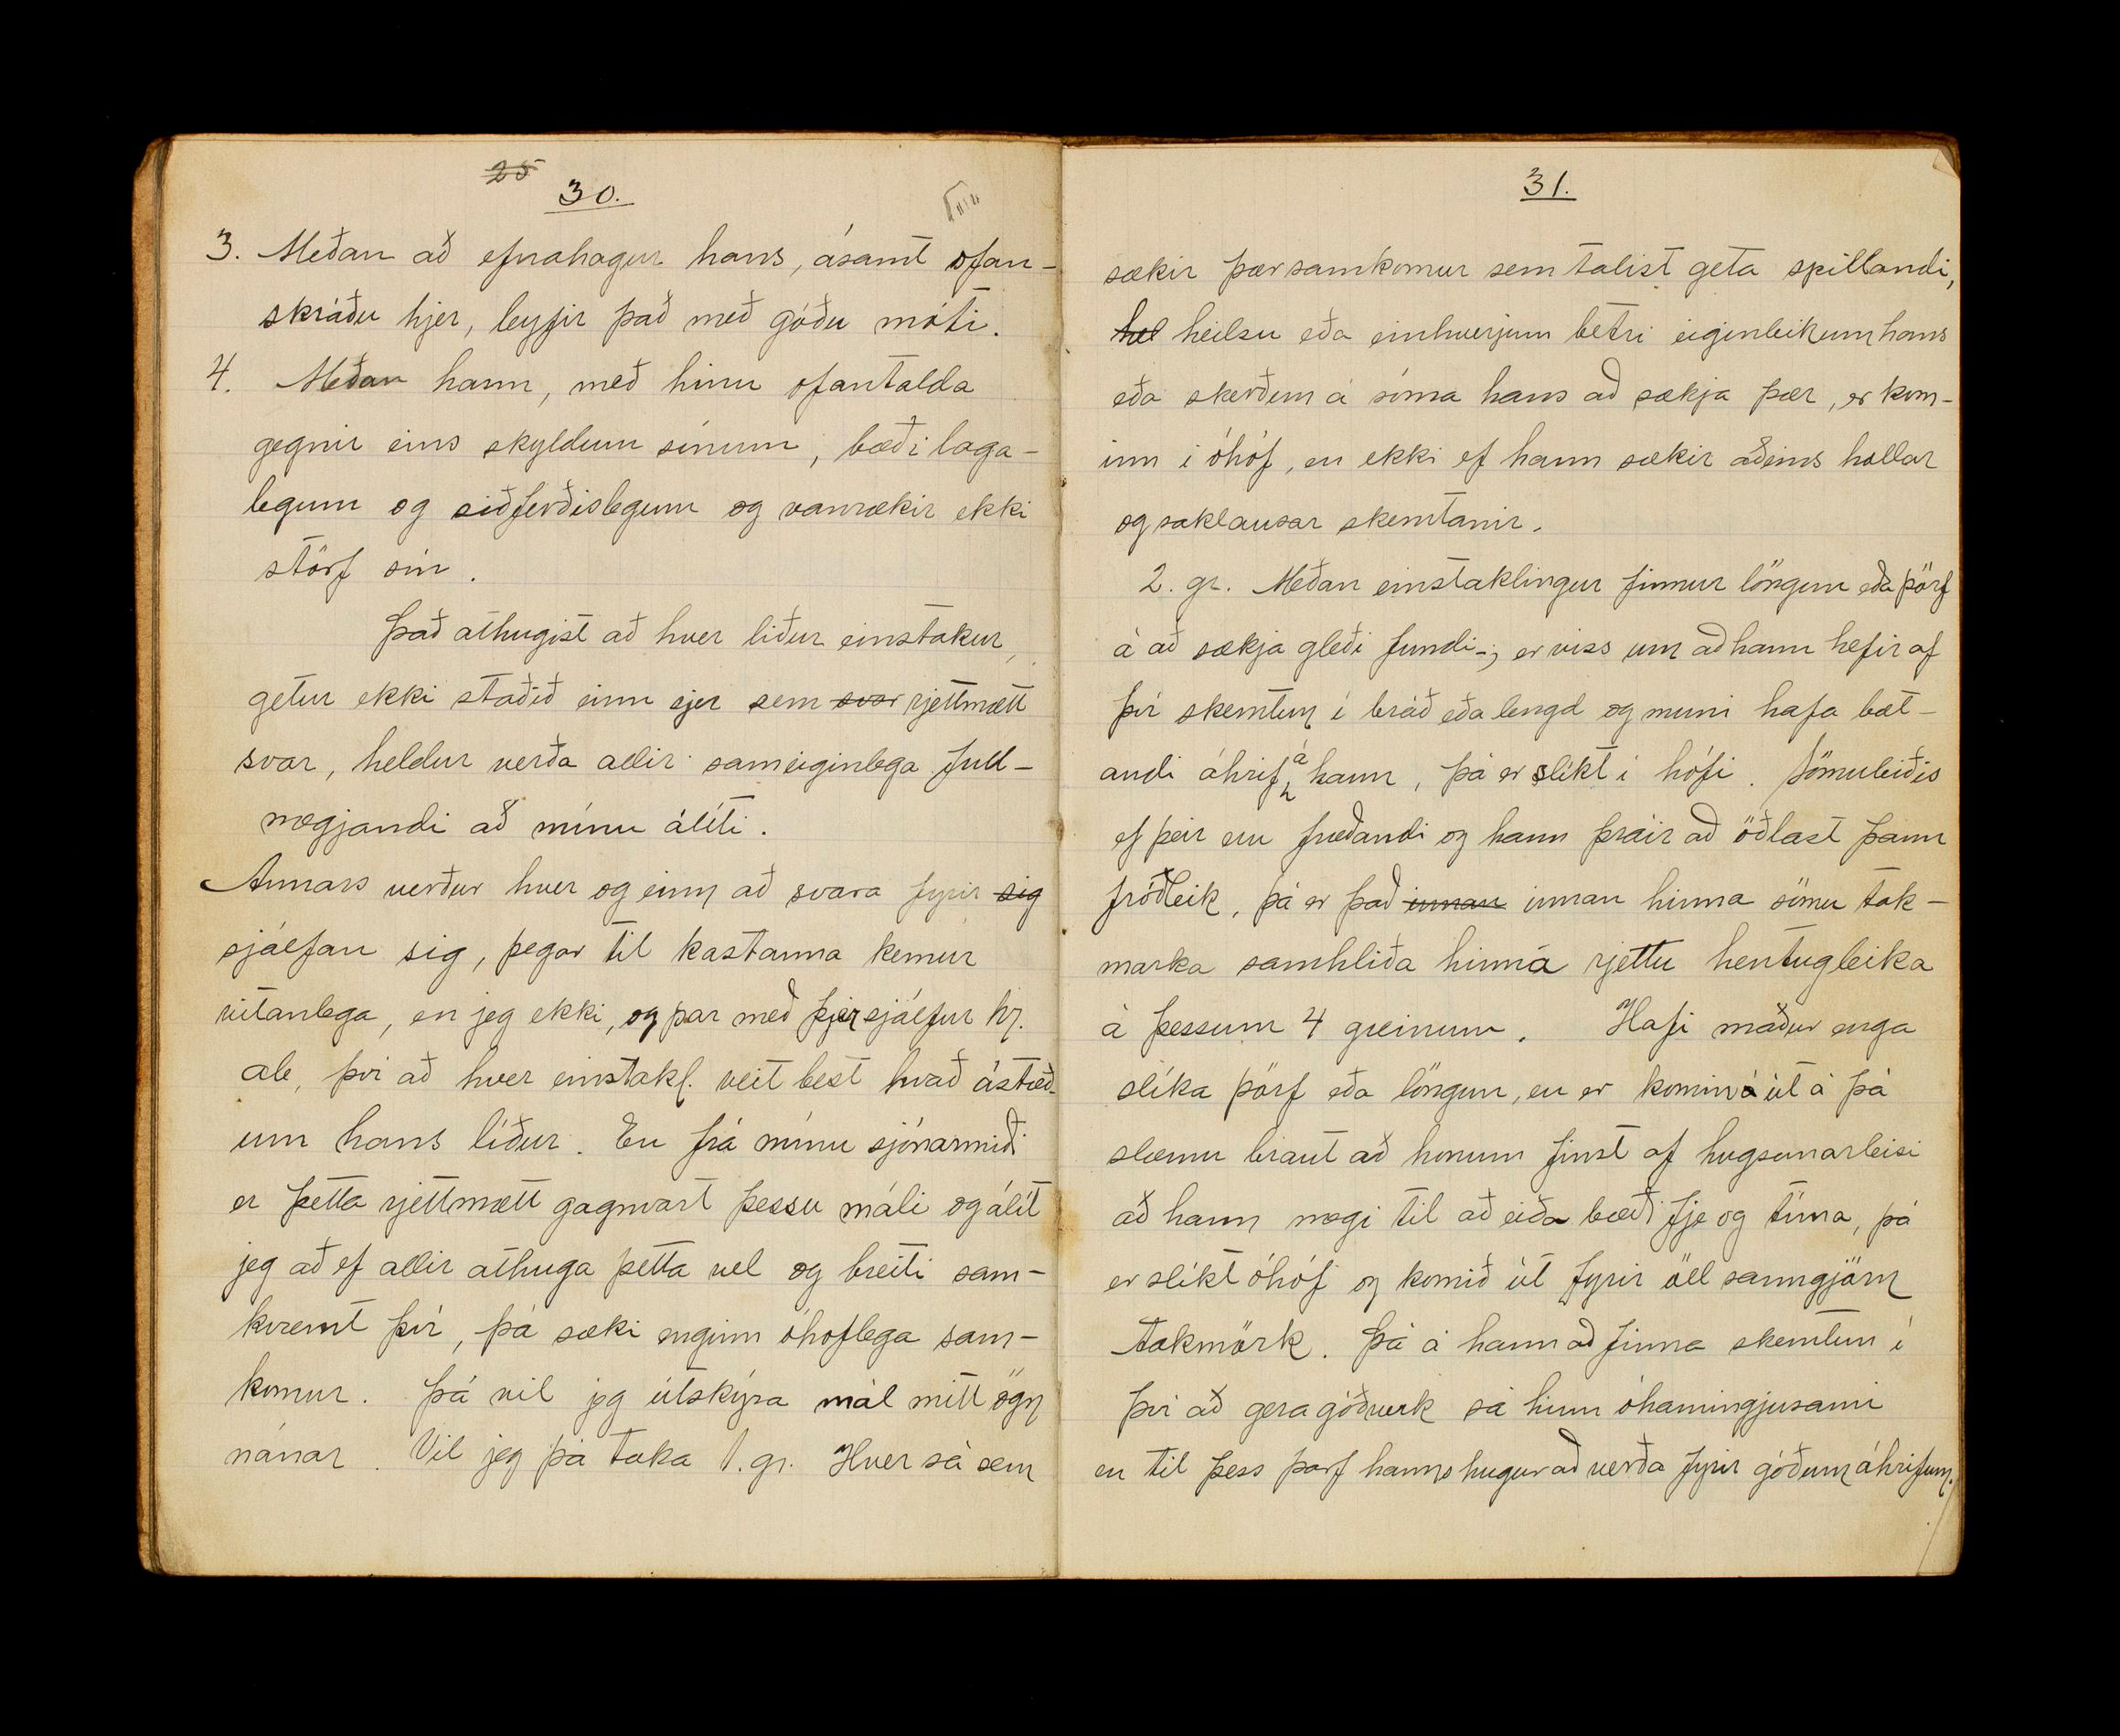 25
30.
3. Meðan að efnahagur hans, ásamt ofan-
skráðu hjer, leyfir það með góðu móti.
4. Meðan hann, með hinu ofantalda
gegnir eins skyldum sínum, bæði laga-
legum og siðferðislegum og vanrækir ekki
störf sín.
Það athugist að hver liður einstakur,
getur ekki staðið einn sjer sem svar rjettmætt
svar, heldur verða allir sameiginlega full-
nægjandi að mínu áliti.
Annars verður hver og einn að svara fyrir sig
sjálfan sig, þegar til kastanna kemur
vitanlega, en jeg ekki, og þar með þjer sjálfur hr.
ale, því að hver einstakl. veit best hvað ástæð-
um hans líður. En frá mínu sjónarmiði
er þetta rjettmætt gagnvart þessu máli og álít
jeg að ef allir athuga þetta vel og breiti sam-
kvæmt því, þá sæki enginn óhoflega sam-
komur. Þá vil jeg útskýra mál mitt ögn
nánar. Vil jeg þá taka 1. gr. Hver sá sem
31.
sækir þær samkomur sem talist geta spillandi,
hel heilsu eða einhverjum betri eiginleikum hans
eða skerðum á sóma hans að sækja þær, er kom-
inn í óhóf, en ekki ef hann sækir aðeins hollar
og saklausar skemtanir.
2. gr. Meðan einstaklingur finnur löngun eða þörf
á að sækja gleði fundi-, er viss um að hann hefir af
því skemtun í bráð eða lengd og muni hafa bæt-
andi áhrif á hann, þá er slíkt í hófi. Sömuleiðis
ef þeir eru fræðandi og hann þráir að öðlast þann
fróðleik, þá er það innan innan hinna sömu tak-
marka samhliða hinna rjettu hentugleika
á þessum 4 greinum. Hafi maður enga
slíka þörf eða löngun, en er kominn út á þá
slæmu braut að honum finst af hugsunarleisi
að hann megi til að eiða bæði fje og tíma, þá
er slíkt óhóf og komið út fyrir öll sanngjörn
takmörk. Þá á hann að finna skemtun í
því að gera góðverk sá hinn óhamingjusami
en til þess þarf hanns hugur að verða fyrir góðum áhrifum.